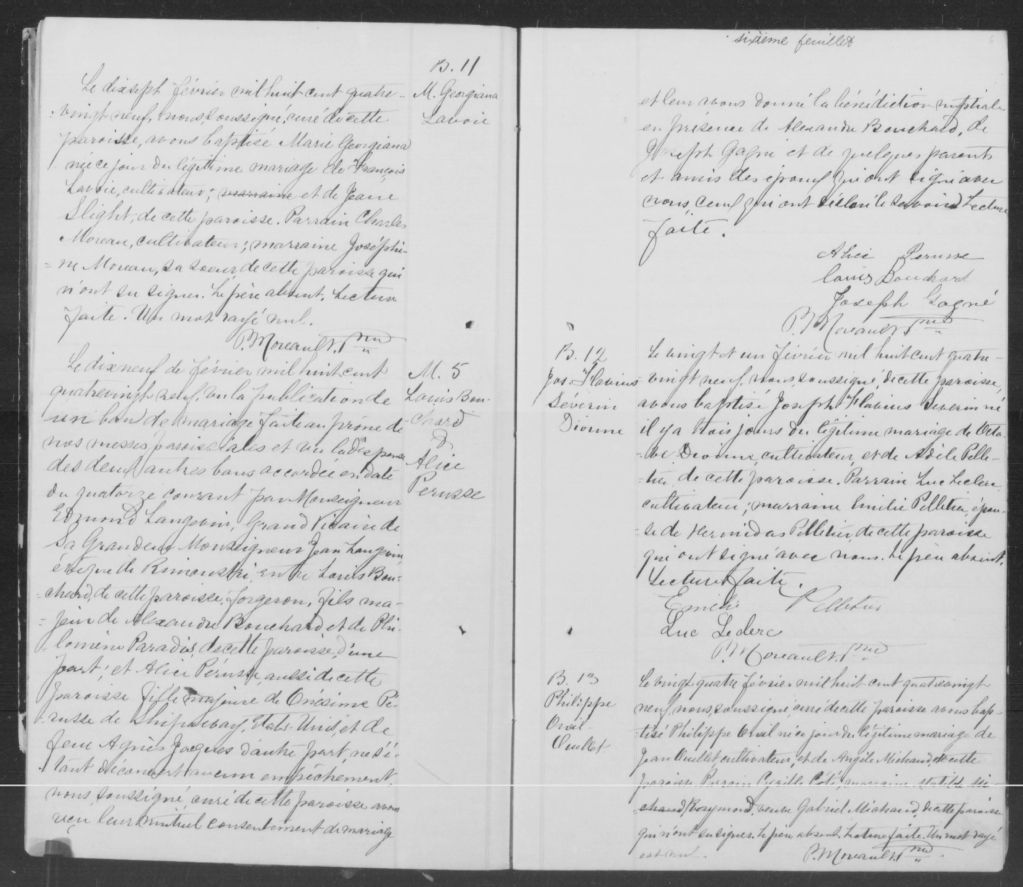 B. 11
M. Georgiana
Lavoie
Le dix sept février mil huit cent quatre-
vingt neuf, nous, soussigné, curé de cette
paroisse, avons baptisé Marie Georgiana
née ce jour du légitime mariage de François
Lavoie, cultivateur; marraine et de Jeane
Slight, de cette paroisse. Parrain Charles
Moreau, cultivateur; marraine Joséphi-
ne Moreau, sa soeur de cette paroisse qui
n'ont su signer. Le père absent. Lecture
faite. Un mot rayé nul.
P. Moreault, Ptre
M. 5
Louis Bou-
chard
&
Alice
Perusse
Le dix neuf de février mil huit cent
quatrevingt neuf, vu la publication de
un ban de mariage faite au prône de
nos messes paroissiales et vu la dispense
des deux autres bans accordée en date
du quatorze courant par Monseigneur
Edmond Langevin, Grand Vicaire de
Sa Grandeur Monseigneur Jean Langevin
évêque de Rimouski, entre Louis Bou-
chard, de cette paroisse, forgeron, fils ma-
jeur de Alexandre Bouchard et de Phi-
lomène Paradis, de cette paroisse, d'une
part; et Alice Pérusse, aussi de cette
paroisse fille majeure de Onésime Pé-
russe de Etats Unis, et de
feue Agnès Jacques d'autre part, ne s'é-
tant découvert aucun empêchement
nous, soussigné, curé de cette paroisse, avons
reçu leur mutuel consentement de mariage
sixième feuillet
et leur avons donné la bénédiction nuptiale
en présence de Alexandre Bouchard, de
Joseph Gagné et de quelques parents
et amis des époux qui ont signé avec
nous, ceux qui ont déclaré le savoir. Lecture
faite.
Alice Perusse
Louis Bouchard
Joseph Gagné
P. Moreault, Ptre
B. 12
Jos. Flavius
Séverin
Dionne
Le vingt et un février mil huit cent quatre-
vingt neuf, nous, soussigné, de cette paroisse,
avons baptisé Joseph Flavius Severin né
il y a trois jours du légitime mariage de Octa-
ve Dionne, cultivateur, et de Adèle Pelle-
tier de cette paroisse. Parrain Luc Leclerc
cultivateur; marraine Emilie Pelletier, épou-
se de Hermidas Pelletier, de cette paroisse
qui ont signé avec nous. Le père absent.
Lecture faite.
Emilie Pelletier
Luc Leclerc
P. Moreault, Ptre
B. 13
Philippe
Oval
Ouellet
Le vingt quatre février mil huit cent quatrevingt
neuf, nous, soussigné, curé de cette paroisse avons bap-
tisé Philippe Oval né ce jour du légitime mariage de
Jean Ouellet, cultivateur, et de Angèle Michaud de cette
paroisse. Parrain Cyrille Coté; marraine Mi-
chaud, Raymond, Gabriel Michaud, de cette paroisse
qui n'ont su signer. Le père absent. Lecture faite. Un mot rayé
est nul.
P. Moreault, Ptre